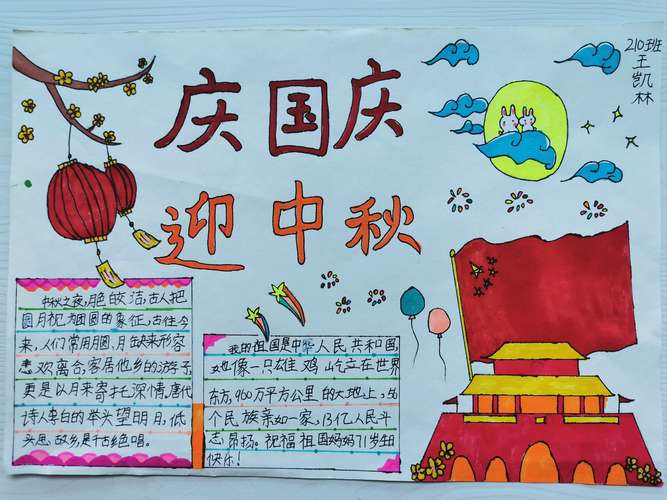 庆国庆
迎中秋
210班
王凯林
中秋之夜,月色皎洁,古人把
圆月视为团圆的象征,古往今
来,人们常用月圆、月缺来形容
悲欢离合,客居他乡的游子,
更是以月来寄托深情,唐代
诗人李白的举头望明月,低
头思故乡是千古绝唱。
我的祖国是中华人民共和国,
她像一只雄鸡屹立在世界
东方,960万平方公里的大地上,56
个民族亲如一家,13亿人民斗
志昂扬。祝福祖国妈妈71岁生日
快乐!